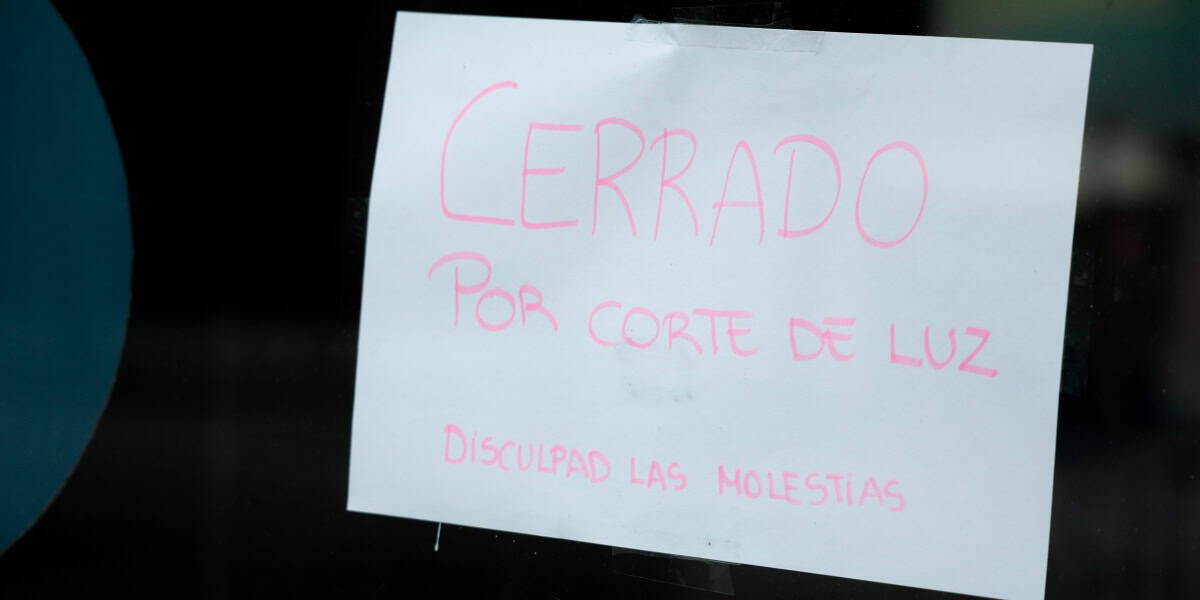 CERRADO
POR CORTE DE LUZ
DISCULPAD LAS MOLESTIAS